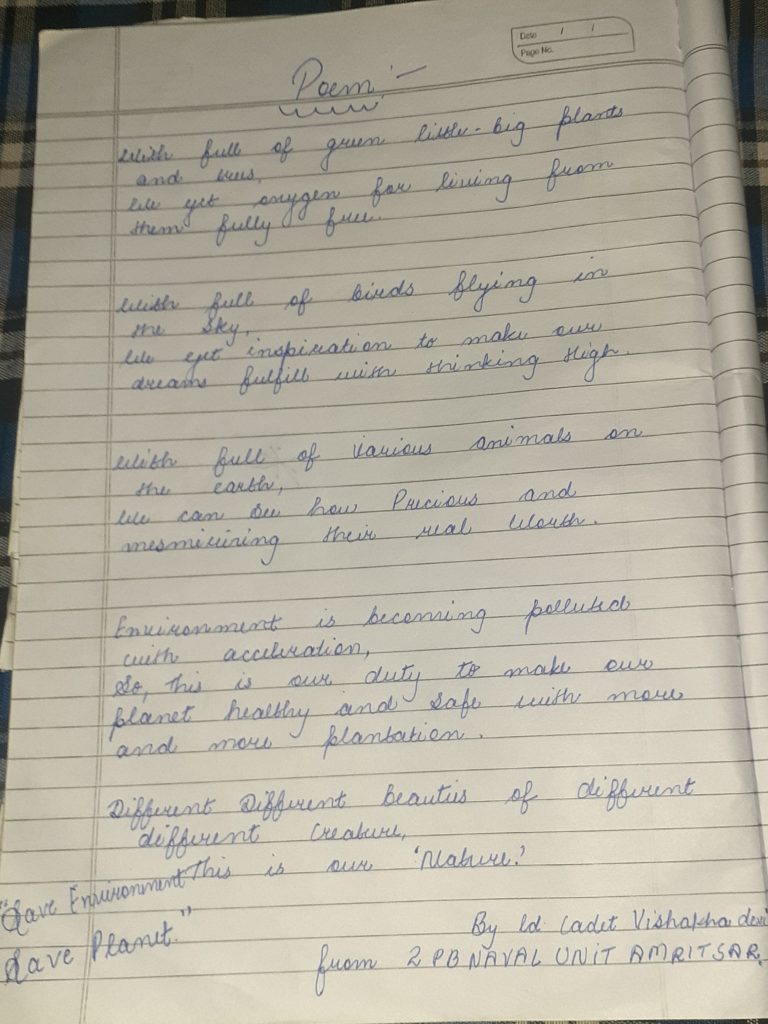 Date / /
Page No.
Poem :-
With full of green little-big plants
and trees,
We get oxygen for living from
them fully free.
With full of birds flying in
the Sky,
We get inspiration to make our
dreams fulfill with thinking High.
With full of various animals on
the earth,
We can see how Precious and
mesmirizing their real Worth.
Environment is becoming polluted
with acceleration,
So, this is our duty to make our
planet healthy and Safe with more
and more plantation.
Different Different beauties of different
different Creature,
This is our 'Nature.'
"Save Environment
Save Planet."
By Ld Cadet Vishakha devi
from 2 PB NAVAL UNIT AMRITSAR.